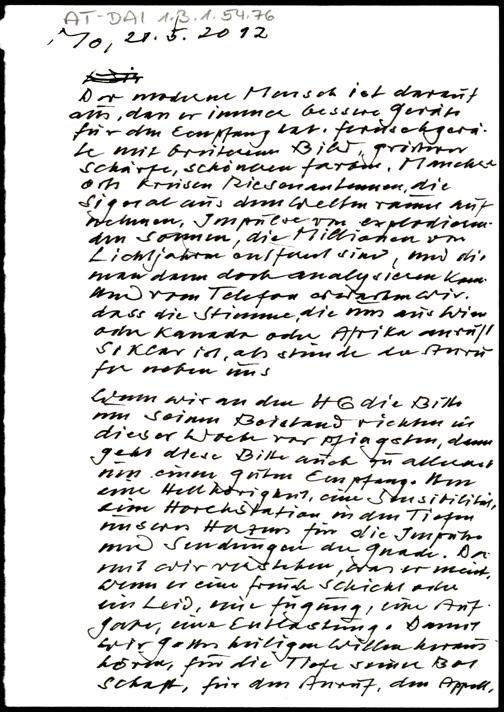 AT-DAI 1.B.1.54.76
Mo, 21.5.2012
Der moderne Mensch ist darauf
aus, dass er immer bessere Geräte
für den Empfang hat. Fernsehgerä-
te mit breiterem Bild, grösserer
Schärfe, schöneren Farben. Mancher-
orts kreisen Riesenantennen, die
Signale aus dem Weltenraume auf
nehmen, Impulse von explodieren-
den Sonnen, die Millionen von
Lichtjahren entfernt sind, und die
man dann doch analysieren kann
Und vom Telefon erwarten wir,
dass die Stimme, die uns aus Wien
oder Kanada oder Afrika anruft
so klar ist, als stünde der Anru
fer neben uns
Wenn wir an den HG die Bitte
um seinen Beistand richten in
dieser Woche vor Pfingsten, dann
geht diese Bitte auch zu allererst
um einen guten Empfang. Um
eine Hellhörigkeit, eine Sensibilität,
eine Horchstation in den Tiefen
unseres Herzens für die Impulse
und Sendungen der Gnade. Da-
mit wir verstehen, was er meint,
wenn er eine Freude schickt oder
ein Leid, eine Fügung, eine Auf-
gabe, eine Entlastung. Damit
wir Gottes heiligen Willen heraus
hören, für die Tiefe seiner Bot
schaft, für den Anruf, den Appell,